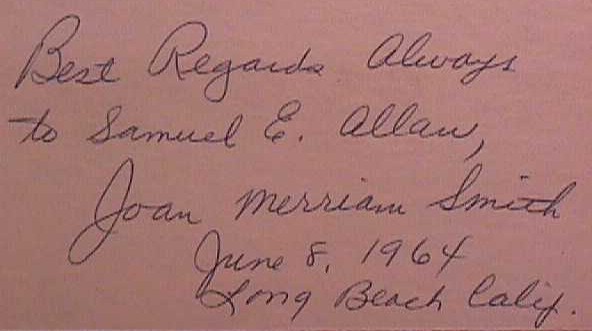 Best Regards Always
to Samuel E. Allan,
Joan Merriam Smith
June 8, 1964
Long Beach Calif.